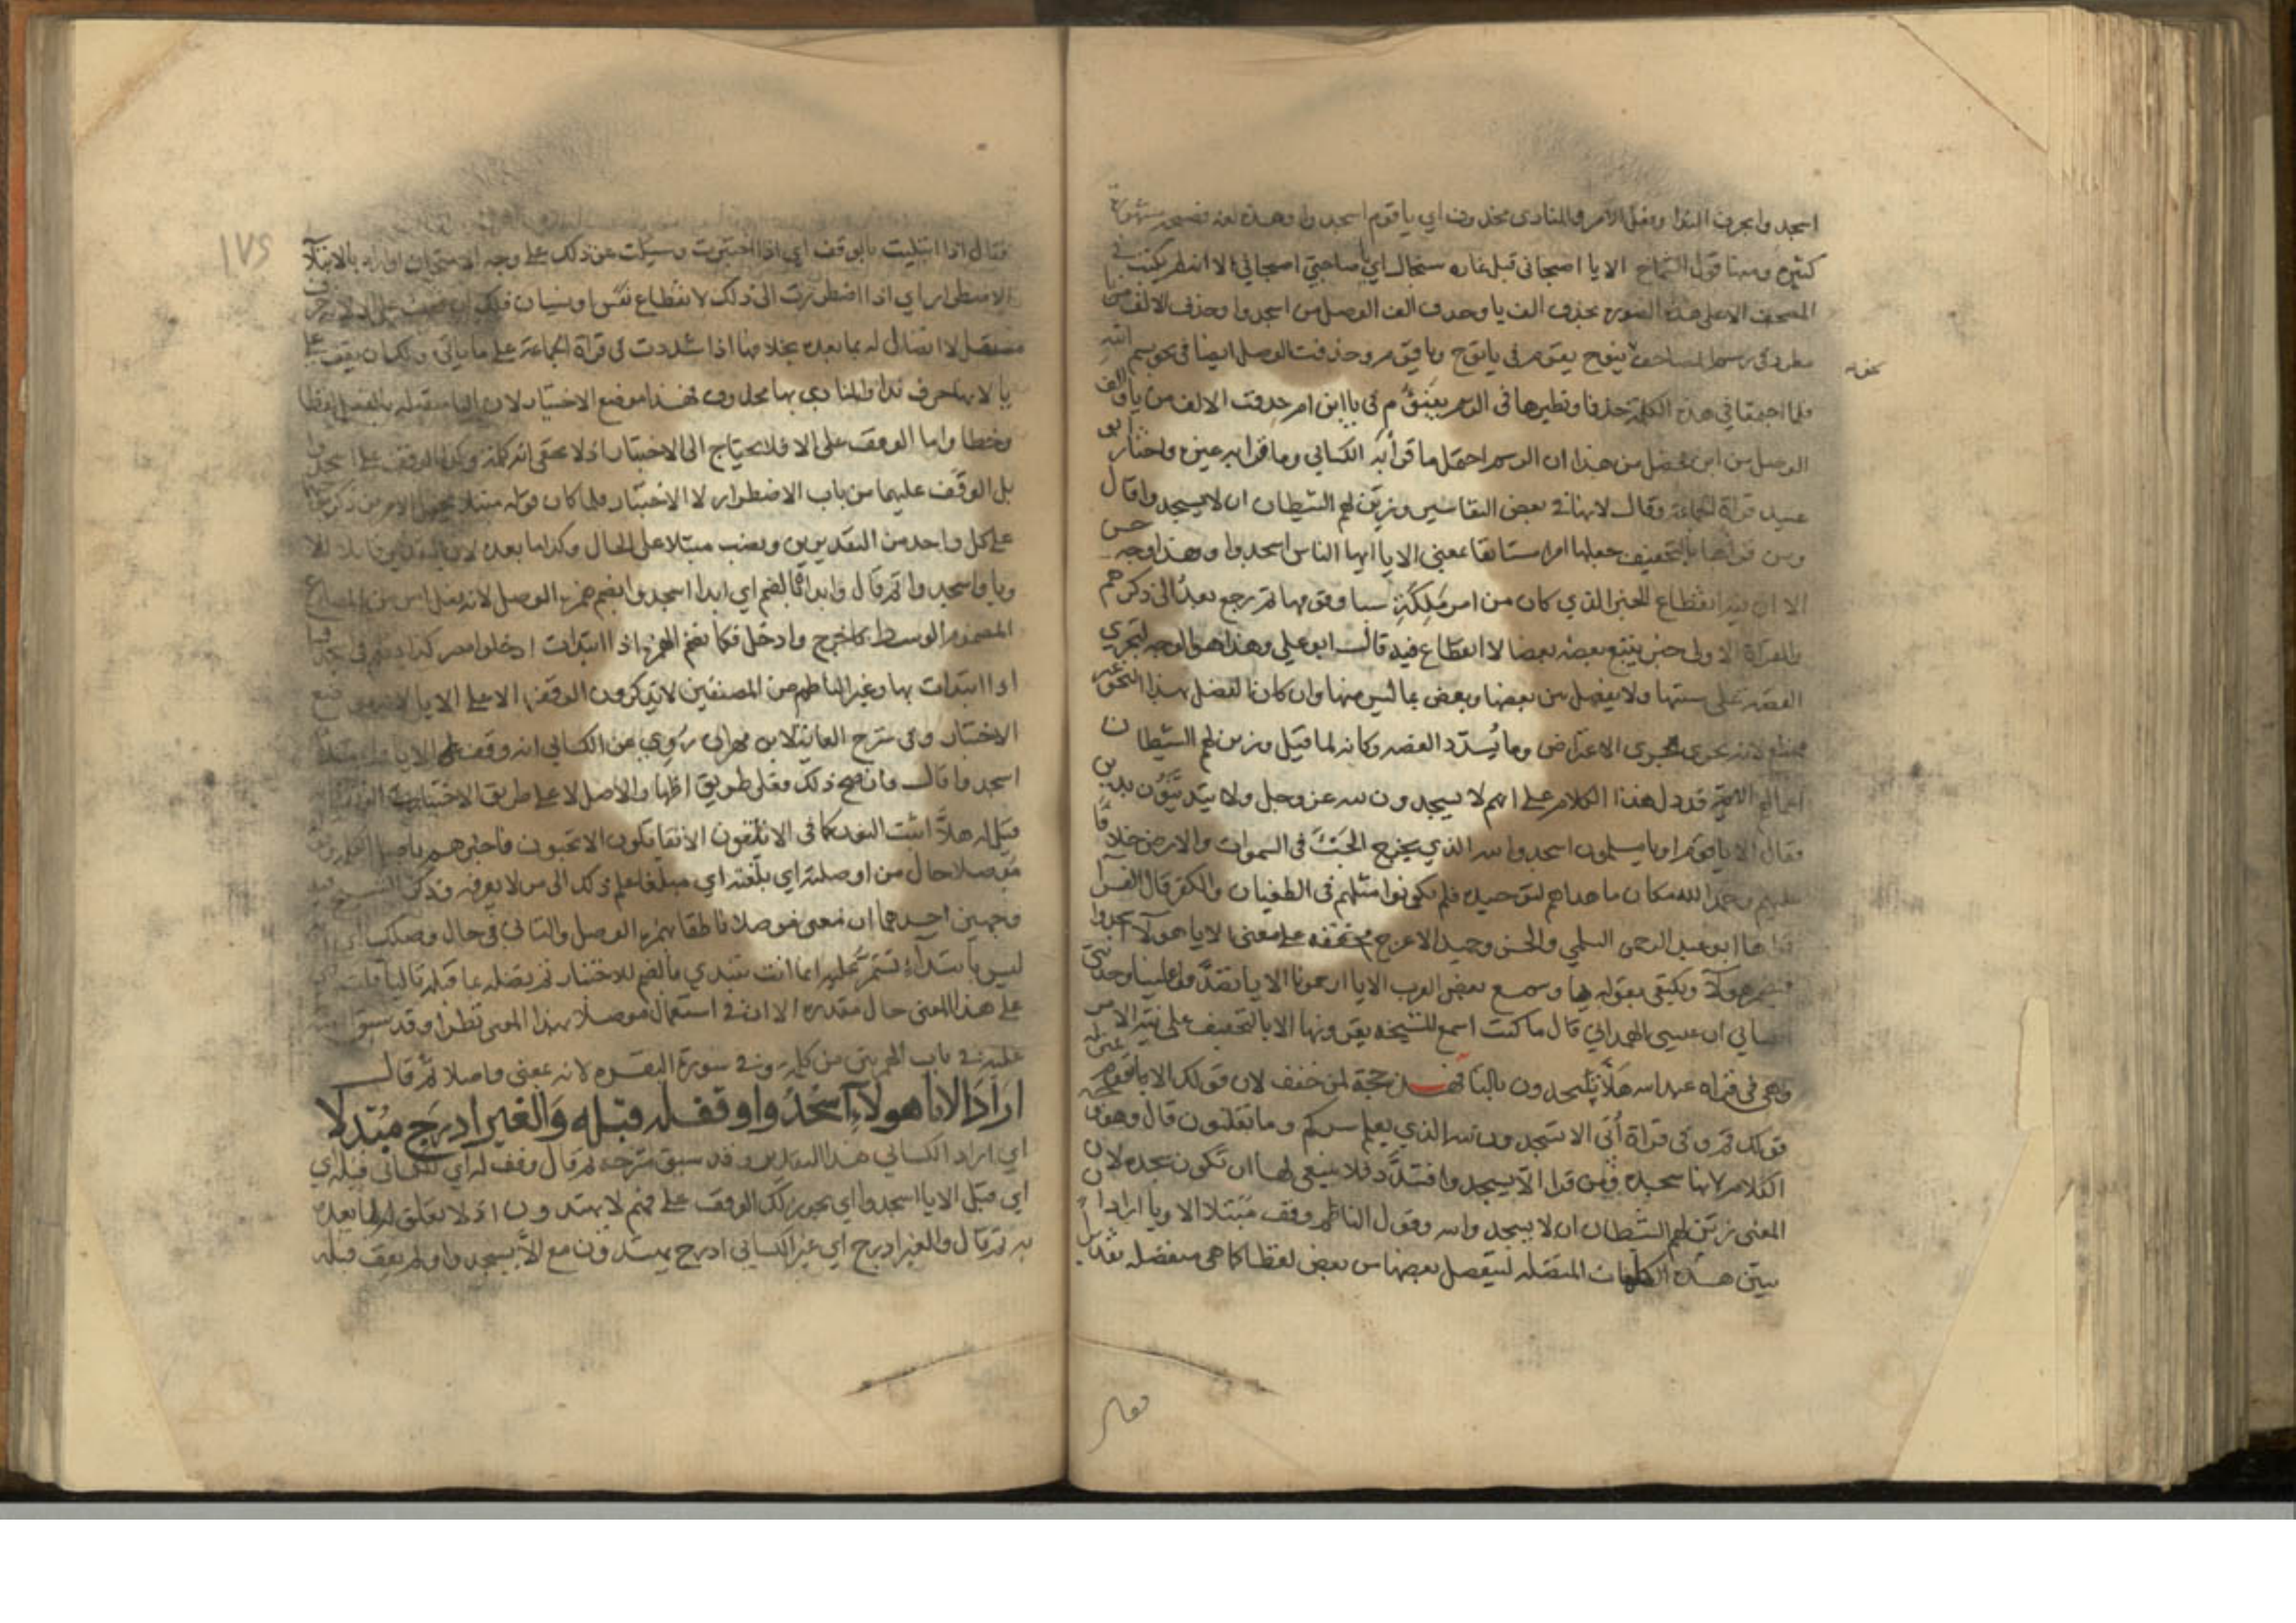 اسجدوا بحرف الندا وفعل الامر والمنادى محذوف اي يا قوم اسجدوا وهذه لغة فصيحة مشهورة
كثيرة ومنها قول الشماخ الا يا اصبحاني قبل غارة سنجال اي يا صاحبي اصبحاني الا انه لم يكتب في
المصحف الا على هذه الصورة بحذف الف يا وحذف الف الوصل من اسجدوا وحذف الالف من يا
مطرد في رسم المصاحف ينوح يقوم في يا نوح ويا قوم وحذفت الوصل ايضا في نحو بسم الله
فلما اجتمعا في هذه الكلمة حذفا ونظيرها في الرسم يبنؤم في يا ابن ام حذفت الالف من يا والف
الوصل من ابن فحصل من هذا ان الرسم احتمل ما قرأ به الكسائي وما قرا به غيره واختار ابو
عبيد قراة الجماعة وقال لانها في بعض التفاسير وزين لهم الشيطان ان لا يسجدوا قال
ومن قراها بالتخفيف جعلها امرا مستانفا بمعنى الا يا ايها الناس اسجدوا وهذا وجه حسن
الا ان فيه انقطاع الخبر الذي كان من امر ملكة سبا وقومها ثم رجع بعد الى ذكرهم
والقراة الاولى خبر يتبع بعضه بعضا لا انقطاع فيه قال ابو علي وهذا هو الوجه لتجري
القصة على سننها ولا يفصل بين بعضها وبعض بما ليس منها وان كان الفصل بهذا النحو غير
ممتنع لانه يجري مجرى الاعتراض وما يسدد القصه وكانه لما قيل وزين لهم الشيطان
اعمالهم الاية قد دل هذا الكلام على انهم لا يسجدون لله عز وجل ولا يتدينون بدين
فقال الا يا قوم او يا مسلمون اسجدوا لله الذي يخرج الخبء في السموات والارض خلافا
عليهم وحمدا لله مكان ما هداهم لتوحيده فلم يكونوا مثلهم في الطغيان والكفر قال الفرا
قراها ابو عبد الرحمن السلمي والحسن وحميد الاعرج مخففه على معنى الا يا هولآ اسجدوا
فيضمر هولآ ويكتفى بقوله يا وسمع بعض العرب الا يا ارحمونا الا يا تصدقوا علينا وحدثني
الكسائي ان عيسى الهمداني قال ما كنت اسمع المشيخه يقرونها الا بالتخفيف على نية الامر
وهي في قراة عبد الله هلا تسجدون بالتا فهذه حجة لمن خفف لان قولك الا يا قوم بمنزلة
قولك قم وفي قراة أبي الا تسجدون لله الذي يعلم سركم وما تعلنون قال وهو وجه
الكلام لانها سجدة ومن قرا الا يسجدوا فشدد فلا ينبغي لها ان تكون سجده لان
المعنى زين لهم الشيطان ان لا يسجدوا لله وقول الناظم وقف مبتلا الا ويا اراد ان
يبين هذه الكلمات المتصلة ليفصل بعضها من بعض لفظا كما هي منفصلة تقديرا
فقال اذا ابتليت بالوقف اي اذا اختبرت وسيلت عن ذلك على وجه الامتحان او اراد بالابتلآ
الاضطرار اي اذا اضطررت الى ذلك لانقطاع نفس او نسيان فلك ان تقف على الا لانه حرف
مستقل لا اتصال له بما بعده بخلافها اذا شددت في قراة الجماعة على ما ياتي ولك ان يقف على
يا لانها حرف ندا والمنادى بها محذوف فهذا موضع الاختبار لان اليا متصلة بالفعل لفظا
وخطا واما الوقف على الا فلا يحتاج الى الاختبار اذ لا يخفى انه كلمة وكذا الوقف على اسجدوا
بل الوقف عليهما من باب الاضطرار لا الاختبار فلما كان قوله مبتلا يحتمل الامرين ذكر
على كل واحد من التقديرين ونصب مبتلا على الحال وكذا ما بعده
ويا واسجدوا ثم قال وابداه بالضم اي ابدا اسجدوا بضم همزة الوصل لانه فعل امر من المضارع
المضموم الوسط كاخرج وادخل فكما تضم الهمزة اذا ابتدات ادخلوا مصر كذا تضم في هذا
اذا ابتدات بها وغير الناظم من المصنفين لا يذكرون الوقف الا على الا يا لانه موضع
الاختبار وفي شرح الغاية لابن مهران روي عن الكسائي انه وقف على الا يا وابتدا
اسجدوا قال فان صح ذلك فعلى طريق اظهار الاصل لا على طريق الاختيار
قيل له هلا اثبت النون كما في الا تتقون الا تقاتلون الا تحبون فاخبرهم باصل الكلمة
موصلا حال من اوصلته اي بلغته اي مبلغا علم ذلك الى من لا يعرفه وذكر الشيخ فيه
وجهين احدهما ان معنى موصلا ناطقا بهمزة الوصل والثاني في حال وصلك اي انه
ليس بابتدآء تستمر عليه انما انت تبتدي بالضم للاختبار ثم تصله بما قبله تاليا قلت
على هذا المعنى حال مقدرة الا ان في استعمال موصلا بهذا المعنى نظرا وقد سبق
عليه في باب الهمزتين من كلمة وفي سورة البقره لانه بمعنى واصلا ثم قال
اراد الا يا هولاء اسجدوا وقف له قبله والغير ادرج مبدلا
اي اراد الكسائي هذا التقدير وقد سبق شرحه ثم قال وقف له اي للكسائي قبله اي
اي قبل الا يا اسجدوا اي يجوز لك الوقف على فهم لا يهتدون اذ لا تعلق لها بما بعده
به ثم قال والغير ادرج اي غير الكسائي ادرج يهتدون مع الا يسجدوا ولم يقف قبله